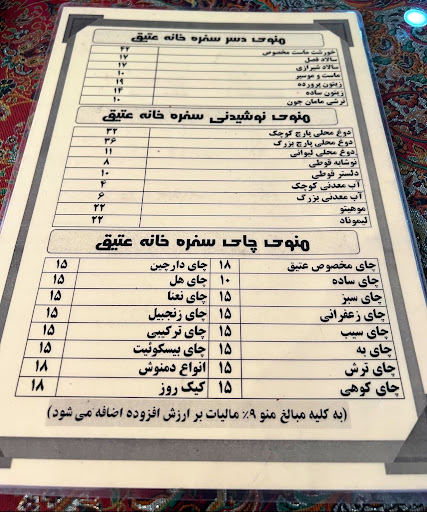 منوی دسر سفره خانه عتیق
خورشت ماست مخصوص ۴۲
سالاد فصل ۱۷
سالاد شیرازی ۱۷
ماست و موسیر ۱۰
زیتون پرورده ۱۹
زیتون ساده ۱۴
ترشی مامان جون ۱۰
منوی نوشیدنی سفره خانه عتیق
دوغ محلی پارچ کوچک ۳۲
دوغ محلی پارچ بزرگ ۳۶
دوغ محلی لیوانی ۱۱
نوشابه قوطی ۸
دلستر قوطی ۱۰
آب معدنی کوچک ۴
آب معدنی بزرگ ۶
موهیتو ۲۲
لیموناد ۲۲
منوی چای سفره خانه عتیق
چای مخصوص عتیق ۱۸ چای دارچین ۱۵
چای ساده ۱۰ چای هل ۱۵
چای سبز ۱۵ چای نعنا ۱۵
چای زعفرانی ۱۵ چای زنجبیل ۱۵
چای سیب ۱۵ چای ترکیبی ۱۵
چای به ۱۵ چای بیسکوئیت ۱۵
چای ترش ۱۵ انواع دمنوش ۱۸
چای کوهی ۱۵ کیک روز ۱۸
(به کلیه مبالغ منو ۹٪ مالیات بر ارزش افزوده اضافه می شود)